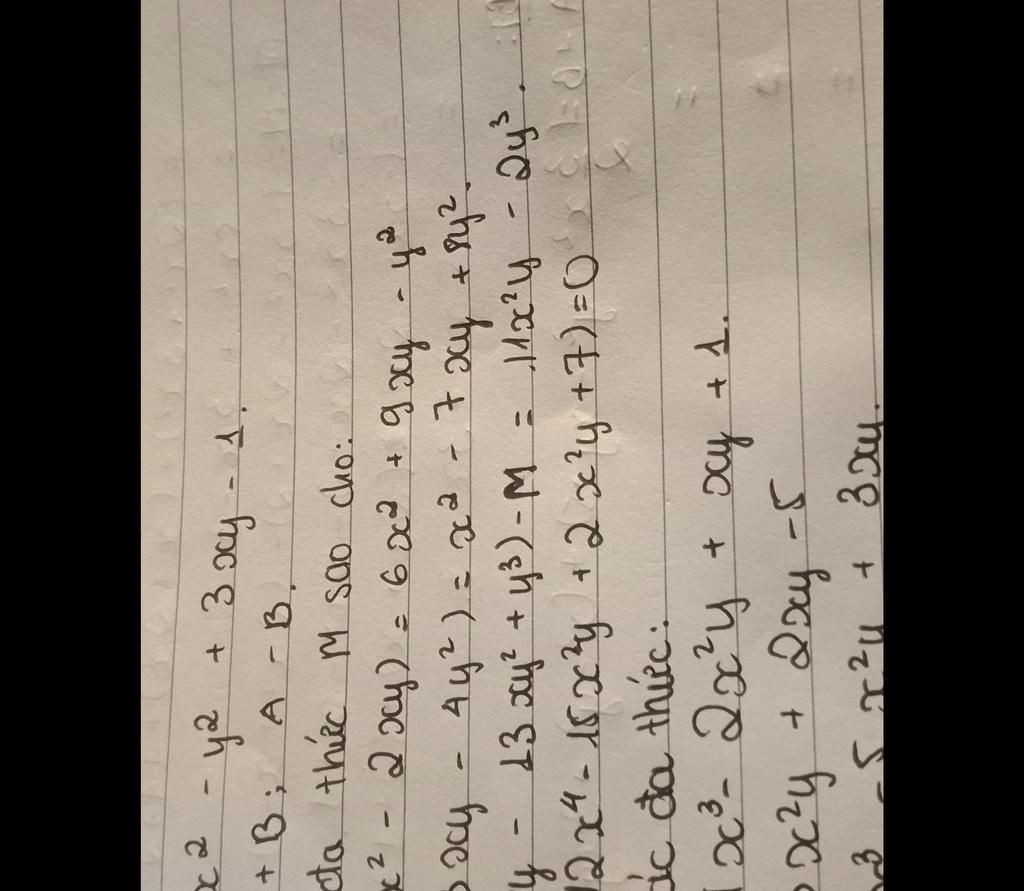 x² - y² + 3xy - 1.
+ B; A - B.
đa thức M sao cho:
x² - 2xy) = 6x² + 9xy - y²
xy - 4y²) = x² - 7xy + 8y².
y - 13xy² + y³) - M = 11x²y - 2y³.
12x⁴ - 15x²y + 2x²y + 7) = 0
ác đa thức:
x³ - 2x²y + xy + 1.
x²y + 2xy - 5
3 - 5x²y + 3xy.